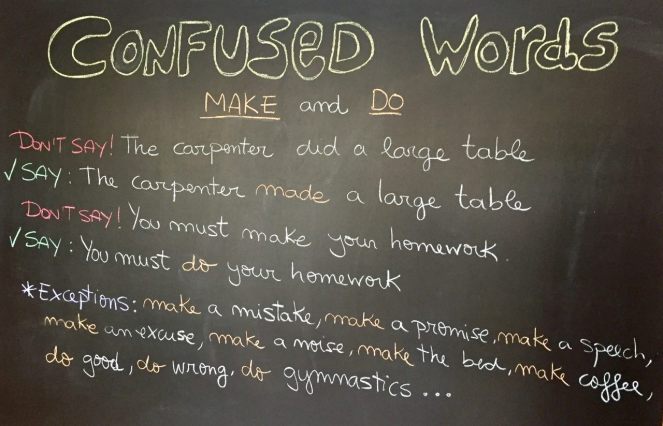 CONFUSED WORDS
MAKE and DO
DON'T SAY! The carpenter did a large table
✓SAY: The carpenter made a large table
DON'T SAY! You must make your homework.
✓SAY: You must do your homework
*Exceptions: make a mistake, make a promise, make a speech,
make an excuse, make a noise, make the bed, make coffee,
do good, do wrong, do gymnastics ...